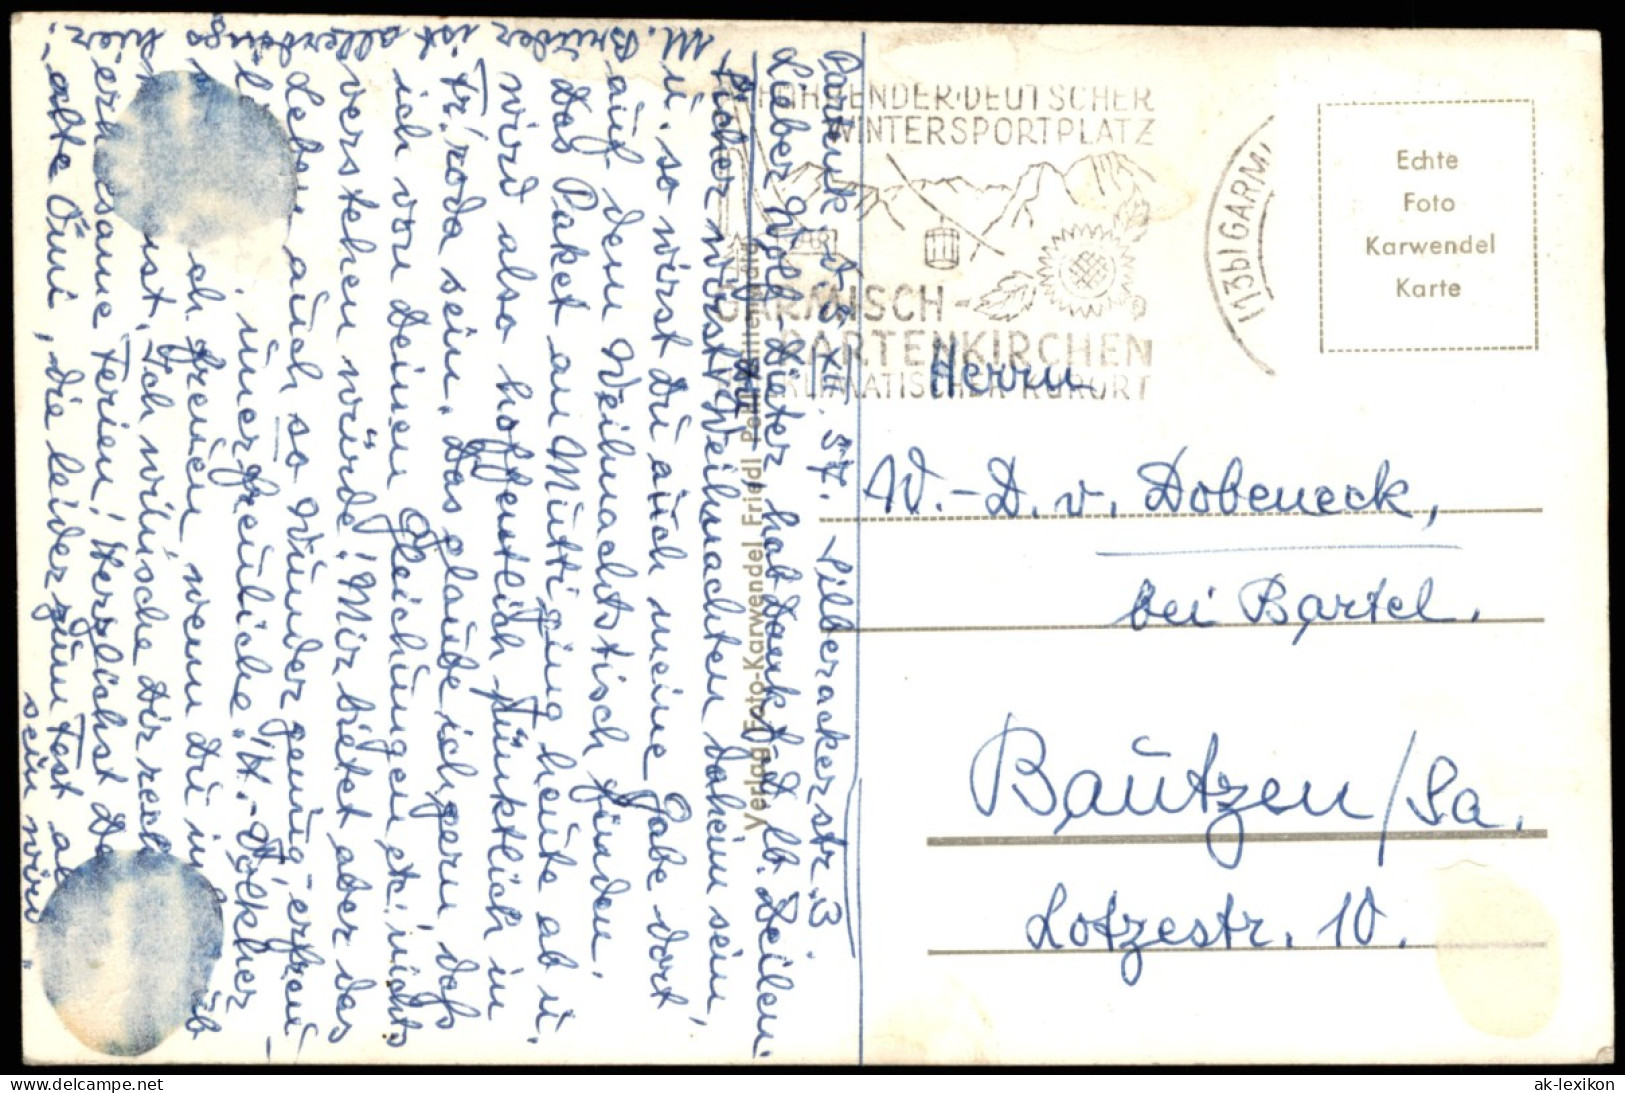 Partenk. d. 5. XII. 57. Silberackerstr. 3
Lieber Wolf-Dieter, hab Dank f. d. lb. Zeilen.
Sicher wirst Du Weihnachten daheim sein,
u. so wirst Du auch meine Gabe dort
auf dem Weihnachtstisch finden.
Das Paket an Mutti ging heute ab u.
wird also hoffentlich pünktlich in
Tr'roda sein. Das glaube ich gern, daß
ich von Deinen Gleichungen etc. nichts
verstehen würde! Mir bietet aber das
Leben auch so Wunder genug, erfreu-
u. unerfreuliche. H.-Volkher
ch freuen, wenn Du in
ist. Ich wünsche Dir
erholsame Ferien! Herzlichst
alte Omi, die leider zum Fest
sein wird.
M. Bruder ist allerdings
hier
HÖCHSTER DEUTSCHER
WINTERSPORTPLATZ
GARMISCH-
PARTENKIRCHEN
KLIMATISCHER KURORT
(13b) GARM
Echte
Foto
Karwendel
Karte
Verlag Foto-Karwendel Friedl
Herrn
W.-D. v. Dobeneck,
bei Bartel.
Bautzen/Sa.
Lotzestr. 10.
www.ak-ansichtskarten.de
ak-lexikon